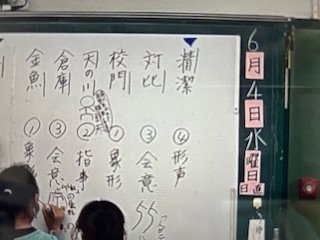 6月4日水曜日
日直
清潔
対比
校門
天の川
倉庫
金魚
④形声
③会意
①象形
②指事
③会意
①象形